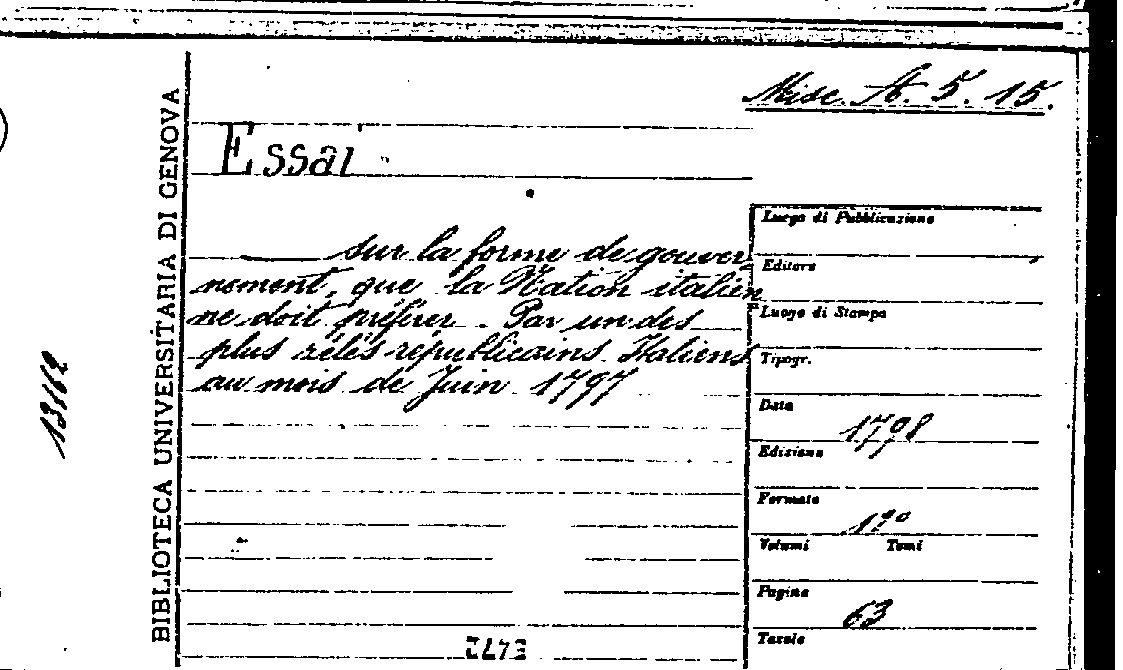 Misc. A. 5. 15.
Essai
sur la forme de gouver
nement, que la Nation italien
ne doit préférer. Par un des
plus zélés républicains Italiens
au mois de Juin 1797
BIBLIOTECA UNIVERSITARIA DI GENOVA
13162
Luogo di Pubblicazione
Editore
Luogo di Stampa
Tipogr.
Data
1798
Edizione
Formato
12º
Volumi Tomi
Pagine
63
Tavole